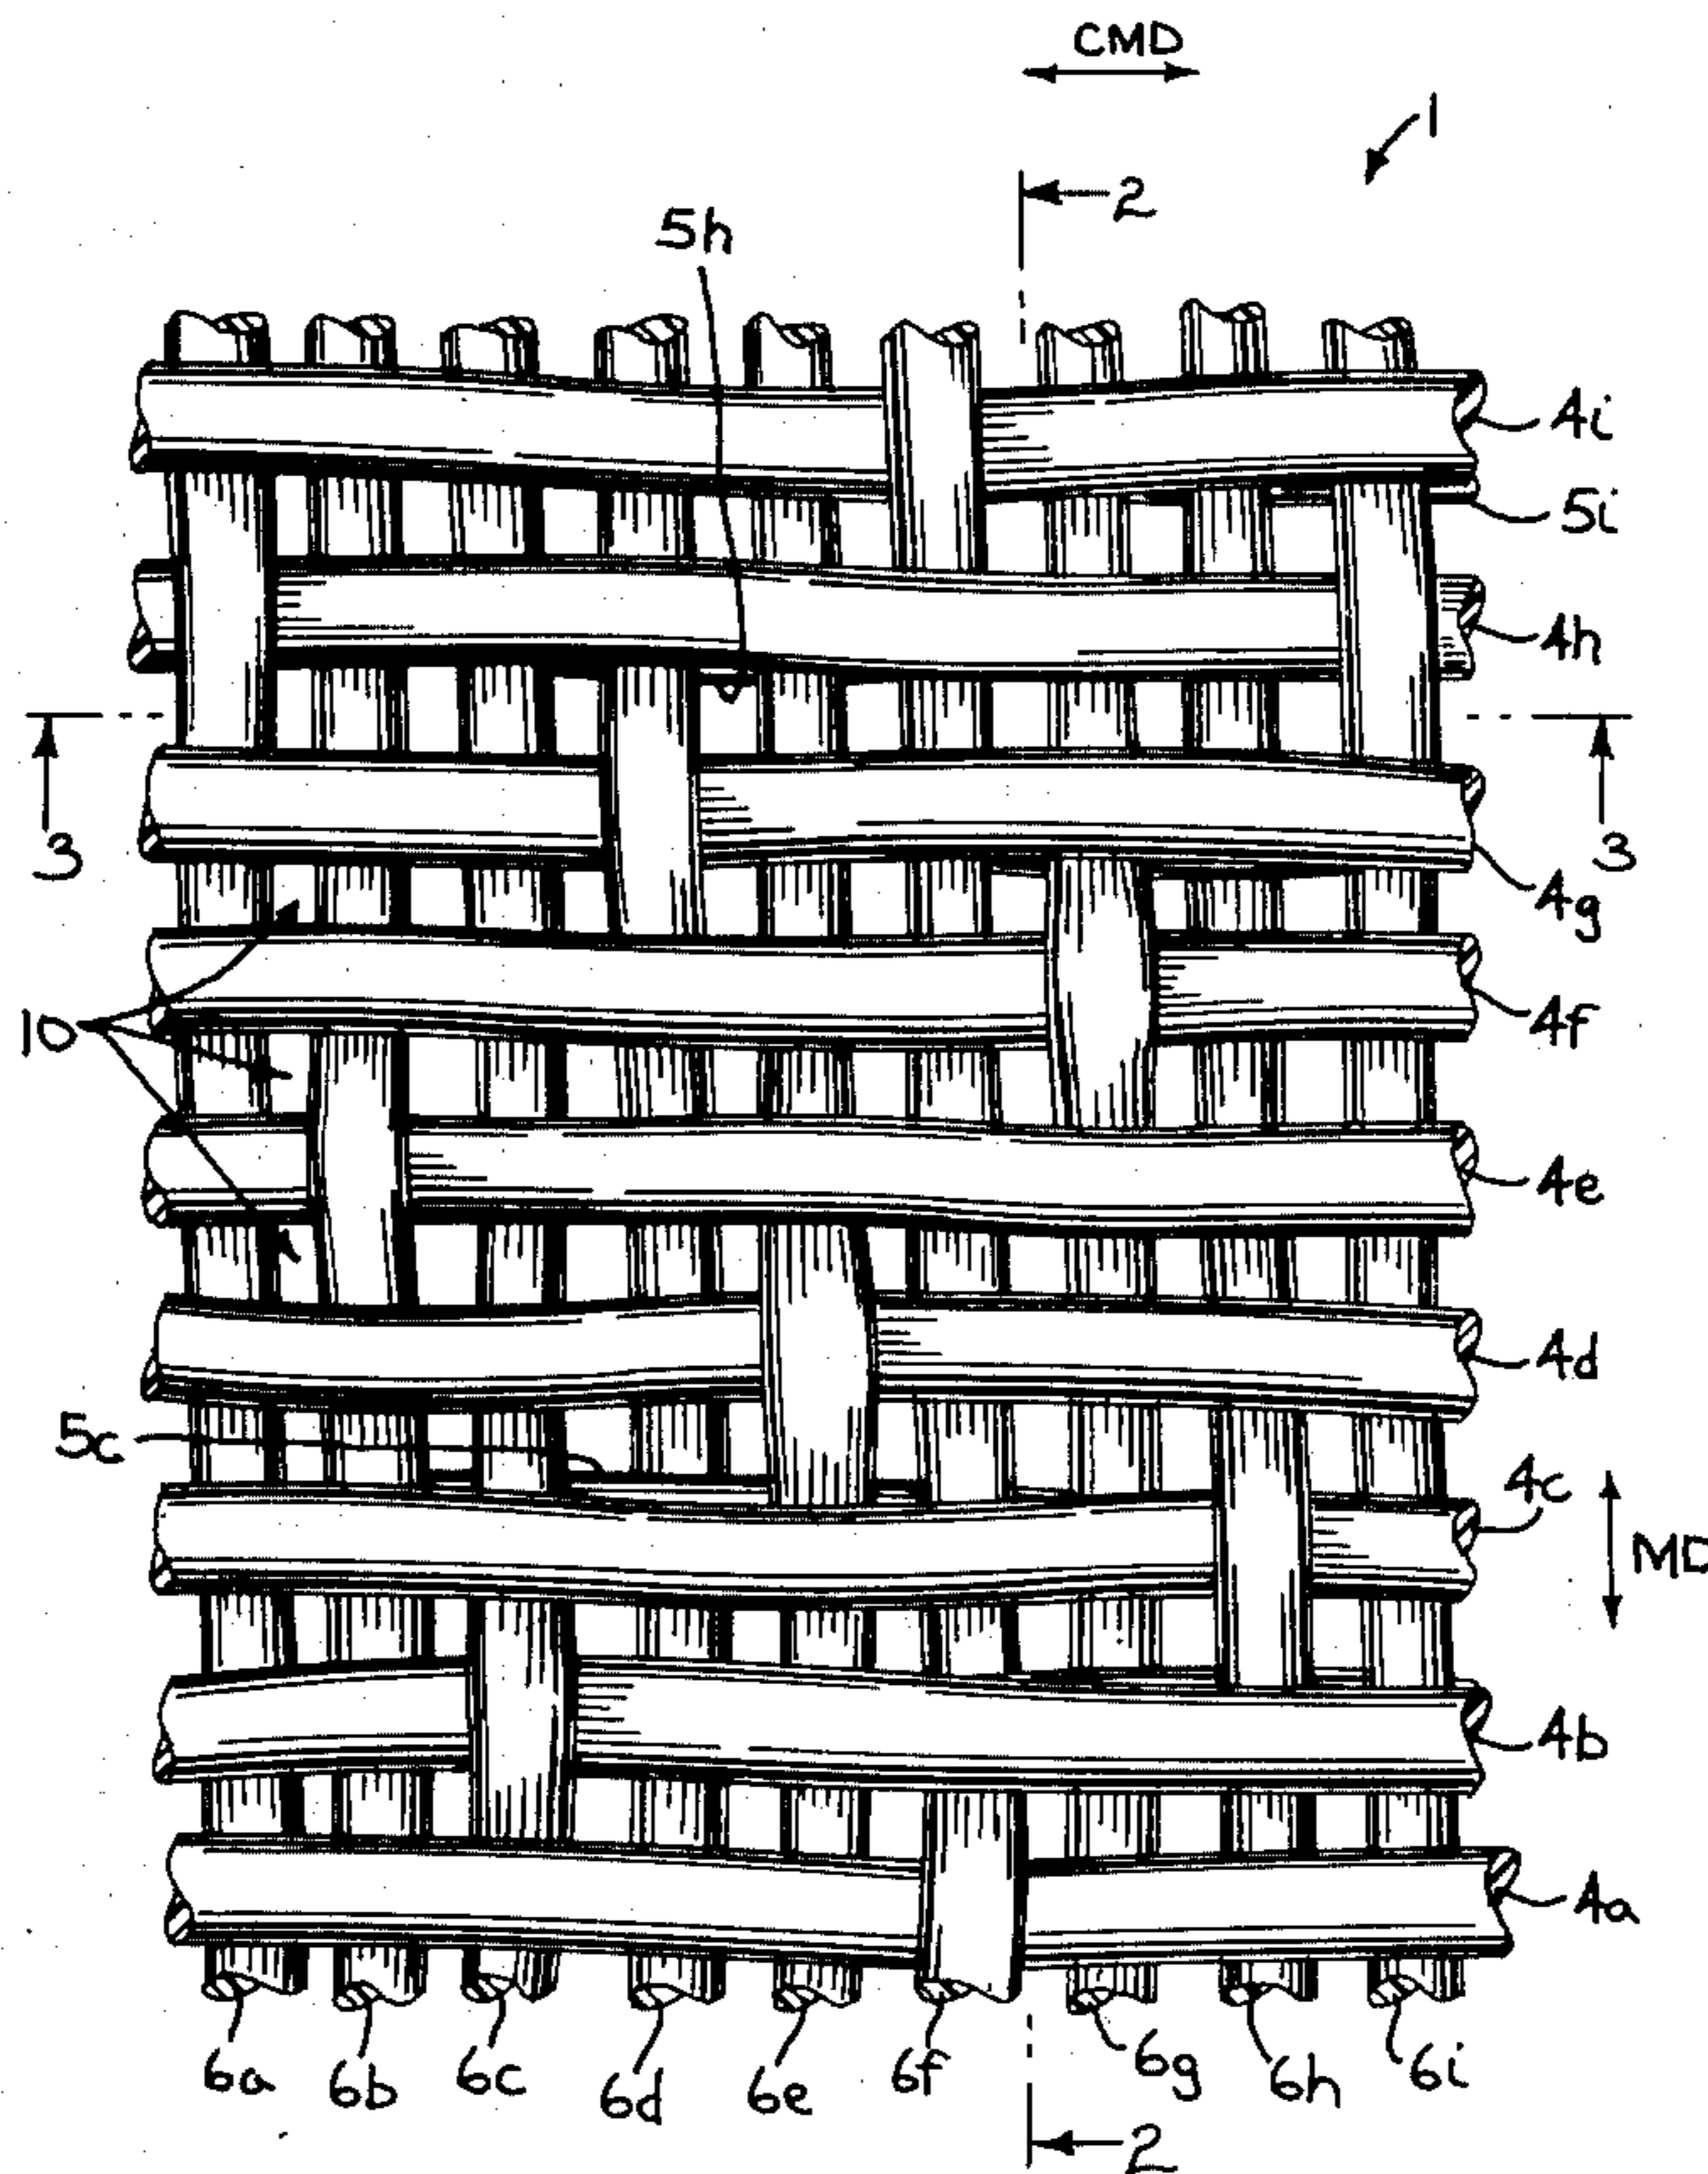 CMD
1
2
5h
4i
5i
4h
3
3
4g
10
4f
4e
4d
5c
4c
MD
4b
4a
6a
6b
6c
6d
6e
6f
6g
6h
6i
2